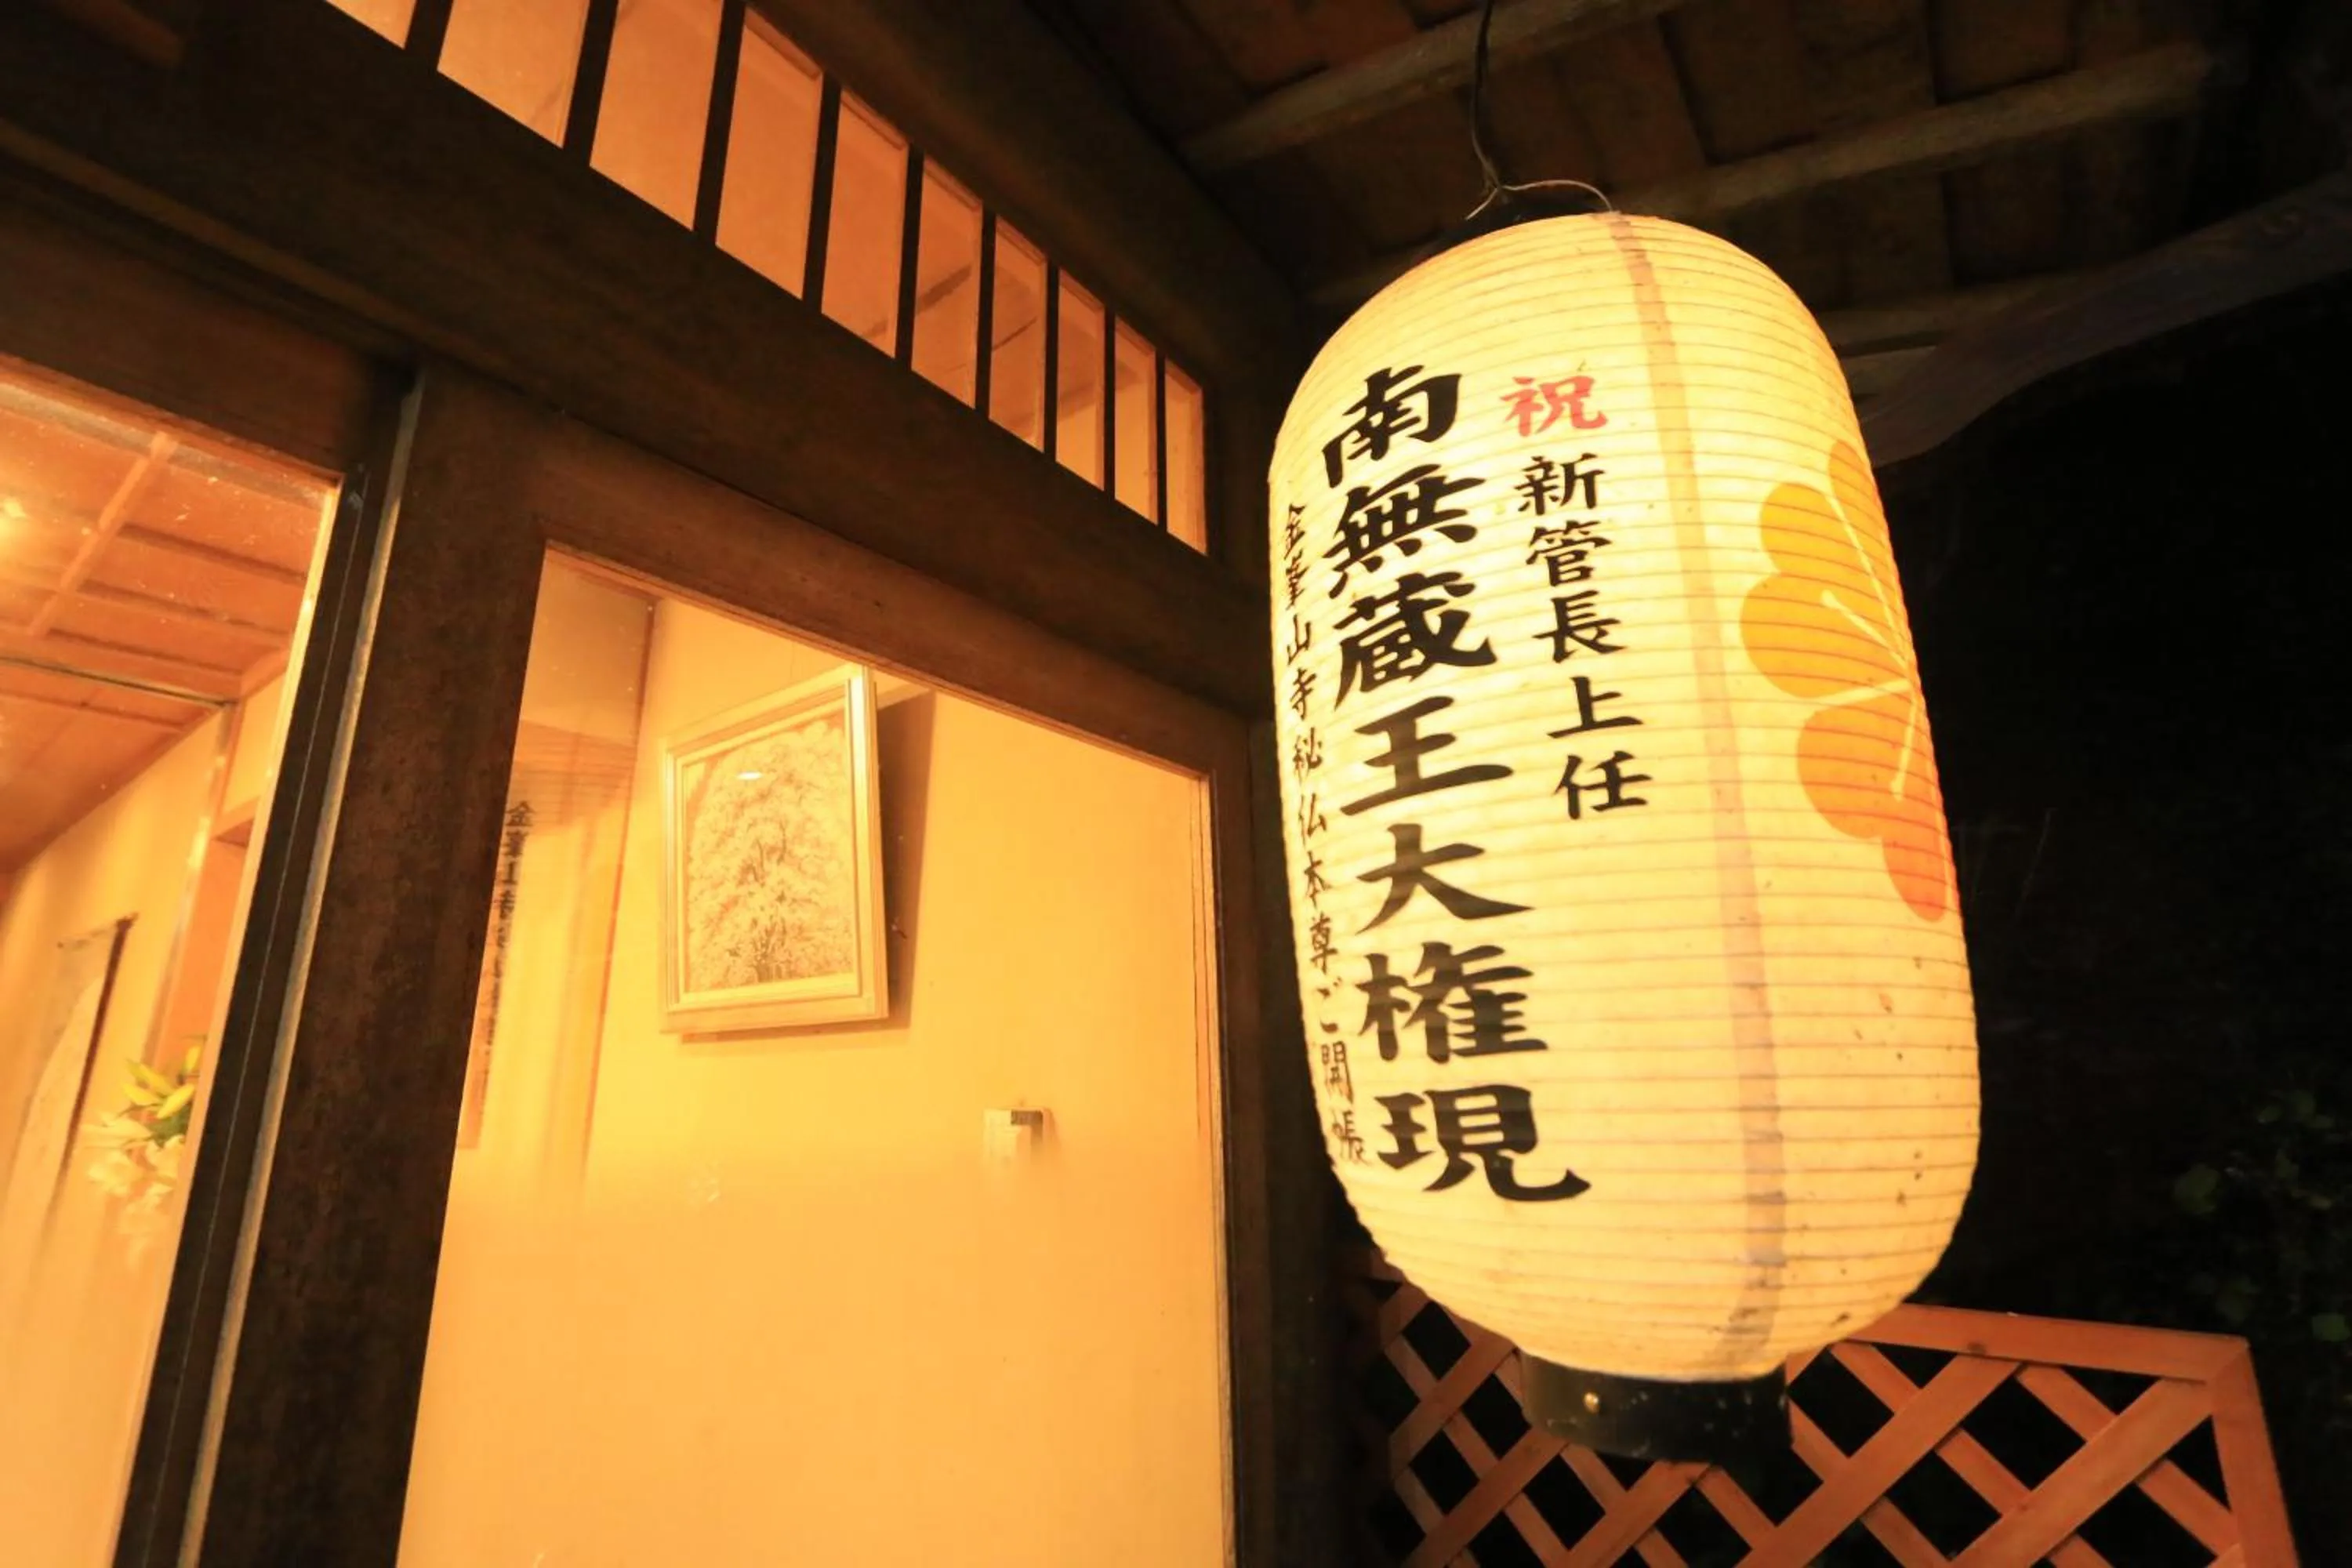 祝 新管長上任
南無蔵王大権現
金峯山寺秘仏本尊ご開帳